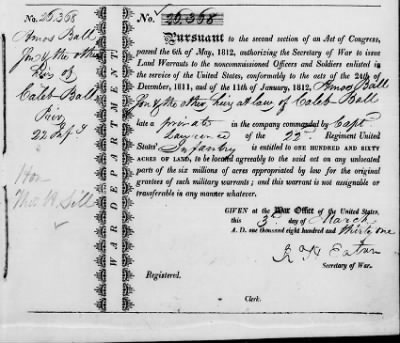 No. 26,368
Amos Ball
Jun. & the other
heirs of
Caleb Ball
Priv
22 Inf
Hon
Thos. H. Sill
WAR DEPARTMENT.
No. 26,368
Pursuant to the second section of an Act of Congress,
passed the 6th of May, 1812, authorizing the Secretary of War to issue
Land Warrants to the noncommissioned Officers and Soldiers enlisted in
the service of the United States, conformably to the acts of the 24th of
December, 1811, and of the 11th of January, 1812, Amos Ball
Jun. & the other heirs at law of Caleb Ball
late a private in the company commanded by Capt.
Lawrence of the 22nd Regiment United
States' Infantry is entitled to ONE HUNDRED AND SIXTY
ACRES OF LAND, to be located agreeably to the said act on any unlocated
parts of the six millions of acres appropriated by law for the original
grantees of such military warrants; and this warrant is not assignable or
transferable in any manner whatever.
GIVEN at the War Office of the United States,
this 3d day of March
A. D. one thousand eight hundred and thirty one
Secretary of War.
Registered.
Clerk.